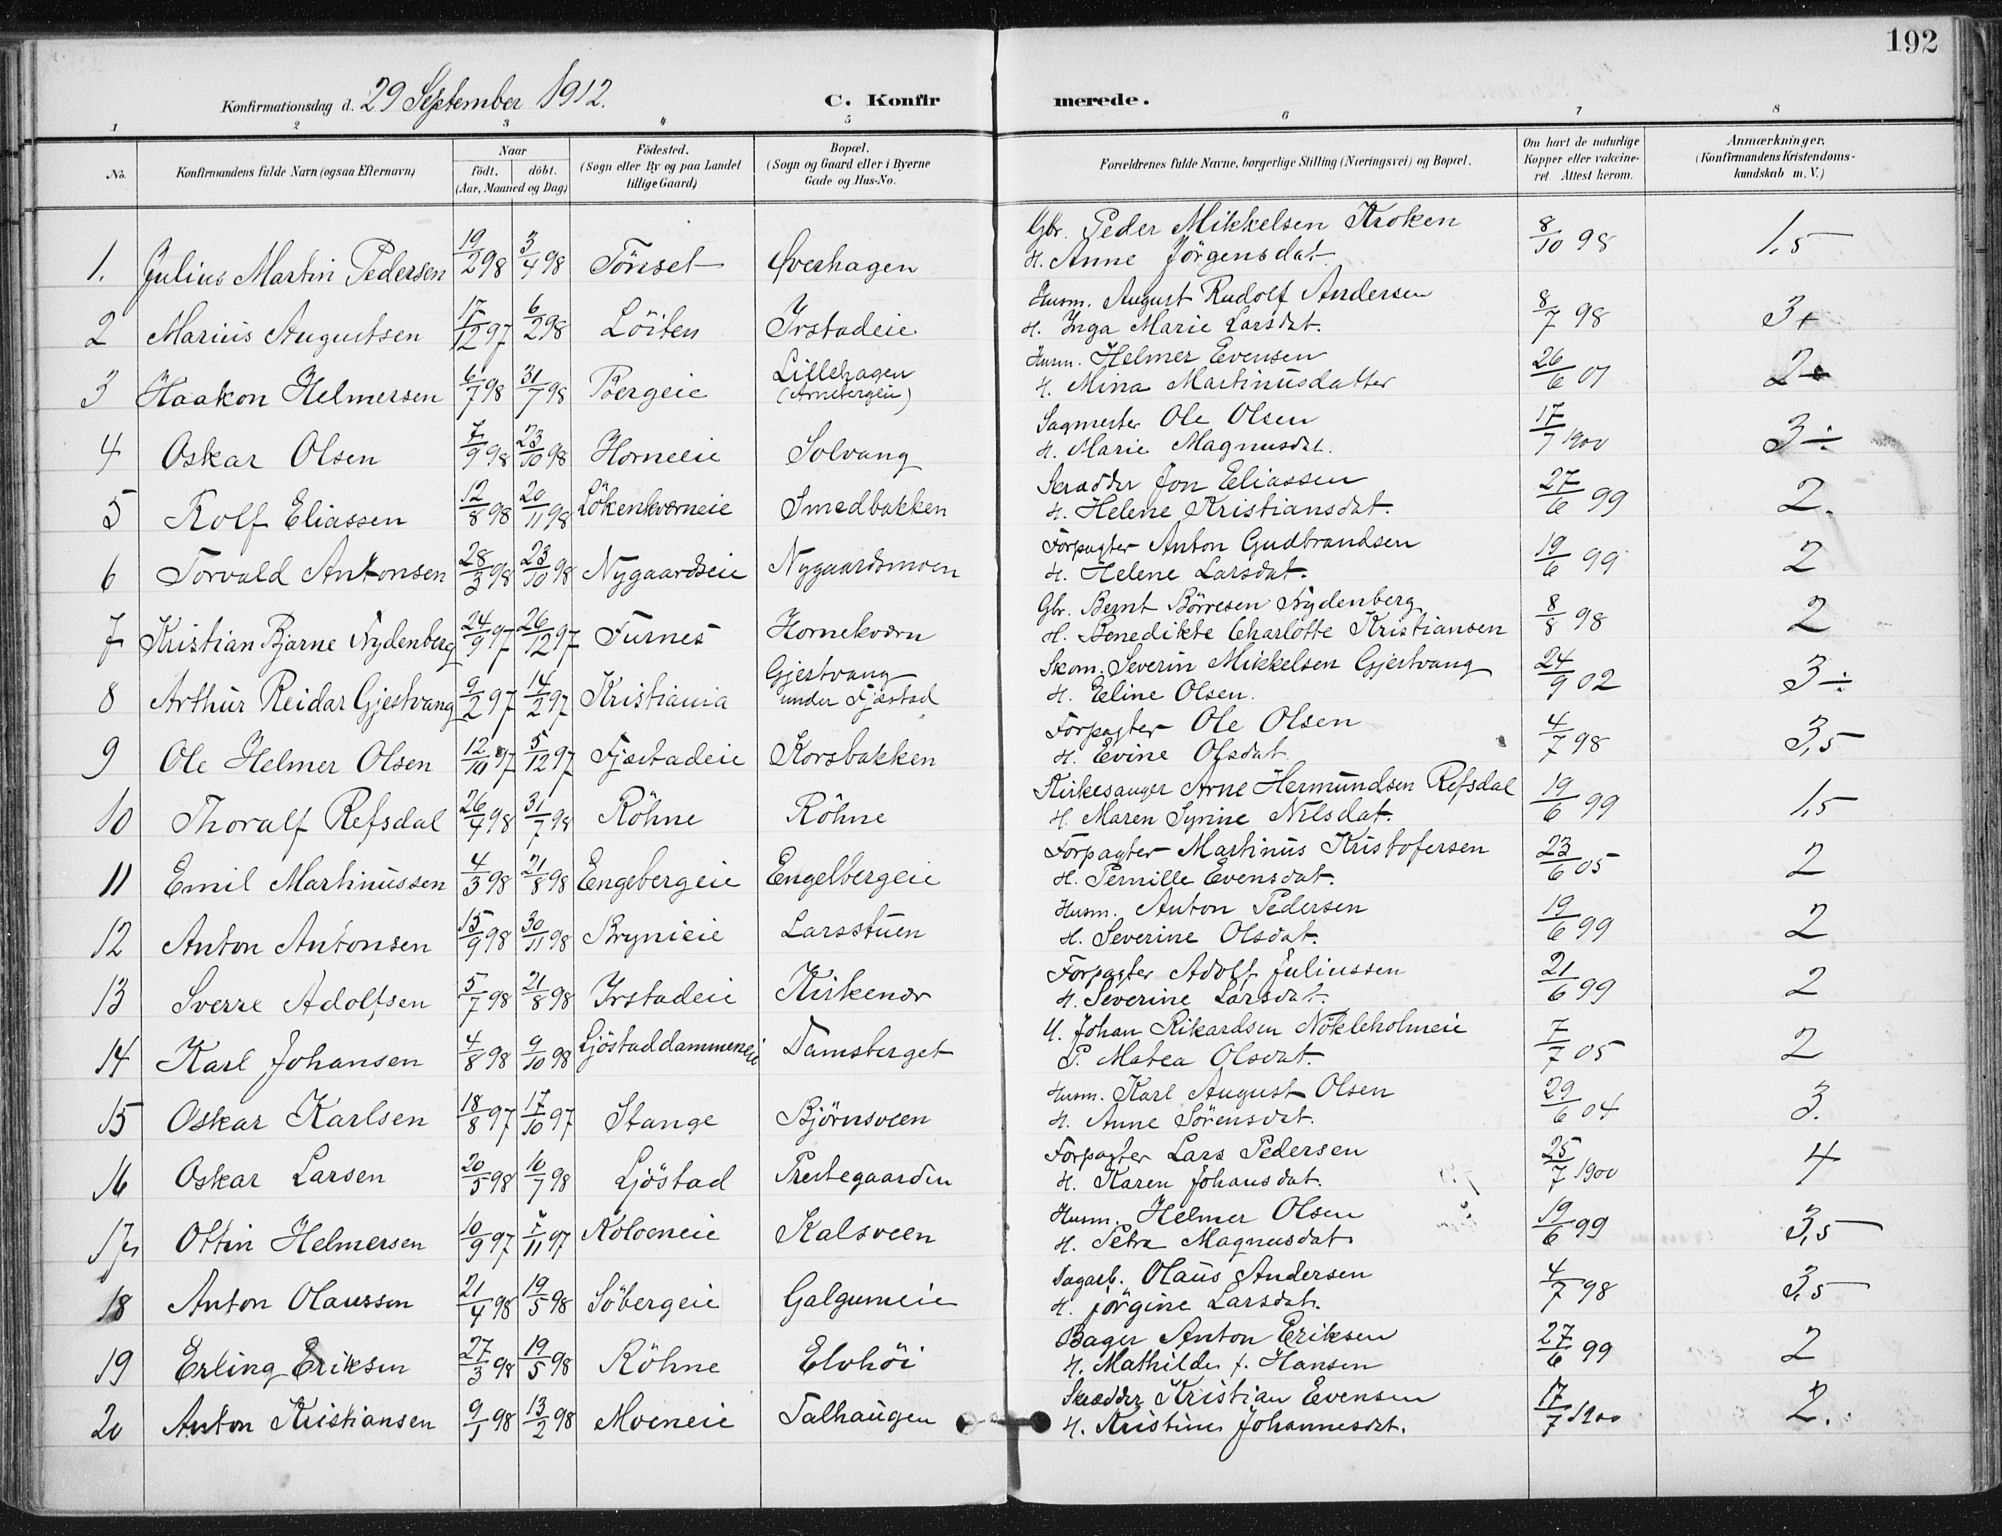 192
Konfirmationsdag d. 29 September 1912. C. Konfirmerede.
1 2 3 4 5 6 7 8
No. Konfirmandens fulde Navn (ogsaa Efternavn) Naar födt. döbt. (Aar, Maaned og Dag) Födested. (Sogn eller By og paa Landet tillige Gaard) Bopæl. (Sogn og Gaard eller i Byerne Gade og Hus-No. Forældrenes fulde Navne, borgerlige Stilling (Næringsvei) og Bopæl. Om havt de naturlige Kopper eller vakcineret. Attest herom. Anmærkninger, (Konfirmandens Kristendomskundskab m. V.)
1. Julius Martin Pedersen 19/2 98 3/4 98 Tönset Øverhagen Gbr. Peder Mikkelsen Kroken 8/10 98 1,5
H. Anne Jörgensdat.
2 Marius Augustsen 17/12 97 6/2 98 Löiten Irstadeie Husm. August Rudolf Andersen 8/7 98 3+
H. Inga Marie Larsdat.
3 Haakon Helmersen 6/7 98 31/7 98 Bergeie Lillehagen Husm. Helmer Evensen 26/6 01 2
H. Mina Martinusdatter
4 Oskar Olsen 7/9 98 23/10 98 Horneeie Solvang Sagmester Ole Olsen 17/7 1900 3÷
H. Marie Magnusdat.
5 Rolf Eliassen 12/8 98 20/11 98 Lökenkværneie Smedbakken Skrædder Jon Eliassen 27/6 99 2.
H. Helene Kristiansdat.
6 Torvald Antonsen 28/3 98 23/10 98 Nygaardseie Nygaardsmoen Forpagter Anton Gudbrandsen 19/6 99 2
H. Helene Larsdat.
7 Kristian Bjarne Nydenberg 24/9 97 26/12 97 Furnes Hornekværn Gbr. Bernt Börresen Nydenberg 8/8 98 2
H. Benedikte Charlotte Kristiansen
8 Arthur Reidar Gjestvang 9/2 97 14/2 97 Kristiania Gjestvang under Fjæstad Skom. Severin Mikkelsen Gjestvang 24/9 02 3÷
H. Eline Olsen.
9 Ole Helmer Olsen 12/10 97 5/12 97 Fjæstadeie Korsbakken Forpagter Ole Olsen 4/7 98 3,5
H. Evine Olsdat
10 Thoralf Refsdal 26/4 98 31/7 98 Röhne Röhne Kirkesanger Arne Hermundsen Refsdal 19/6 99 1,5
H. Maren Syrine Nilsdat.
11 Emil Martinussen 4/3 98 21/8 98 Engebergeie Engelbergeie Forpagter Martinus Kristofersen 23/6 05 2
H. Pernille Evensdat.
12 Anton Antonsen 15/9 98 30/11 98 Brynieie Larsstuen Husm. Anton Pedersen 19/6 99 2
H. Severine Olsdat.
13 Sverre Adolfsen 5/7 98 21/8 98 Irstadeie Kirkenær Forpagter Adolf Juliussen 21/6 99 2
H. Severine Larsdat.
14 Karl Johansen 4/8 98 9/10 98 Ljöstaddammeneie Damsberget U. Johan Rikardsen Nökleholmeie 7/7 05 2
P. Matea Olsdat.
15 Oskar Karlsen 18/8 97 17/10 97 Stange Björnsveen Husm. Karl August Olsen 29/6 04 3.
H. Anne Sörensdat.
16 Oskar Larsen 20/5 98 10/7 98 Ljöstad Prestegaarden Forpagter Lars Pedersen 25/7 1900 4
H. Karen Johansdat.
17 Ottin Helmersen 10/9 97 /11 97 Kalsveen Husm. Helmer Olsen 19/6 99 3,5
H. Petra Magnusdat
18 Anton Olaussen 21/4 98 19/5 98 Söbergeie Galgumeie Dagarb. Olaus Andersen 4/7 98 3,5
H. Jörgine Larsdat.
19 Erling Eriksen 27/3 98 19/5 98 Röhne Elvhöi Bager Anton Eriksen 27/6 99 2
H. Mathilde f. Hansen
20 Anton Kristiansen 9/1 98 13/2 98 Moeneie Talhaugen Skrædder Kristian Evensen 17/7 1900 2.
H. Kristine Johannesdat.